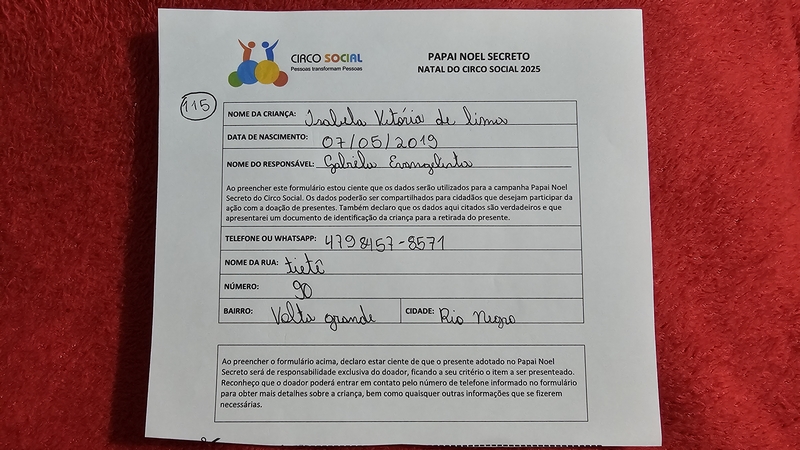 CIRCO SOCIAL
Pessoas transformam Pessoas
PAPAI NOEL SECRETO
NATAL DO CIRCO SOCIAL 2025
115
NOME DA CRIANÇA: Isabela Vitória de lima
DATA DE NASCIMENTO: 07/05/2019
NOME DO RESPONSÁVEL: Gabriéla Evangelista
Ao preencher este formulário estou ciente que os dados serão utilizados para a campanha Papai Noel
Secreto do Circo Social. Os dados poderão ser compartilhados para cidadãos que desejam participar da
ação com a doação de presentes. Também declaro que os dados aqui citados são verdadeiros e que
apresentarei um documento de identificação da criança para a retirada do presente.
TELEFONE OU WHATSAPP: 479 8457-8571
NOME DA RUA: tietê
NÚMERO: 90
BAIRRO: Volta grande CIDADE: Rio Negro
Ao preencher o formulário acima, declaro estar ciente de que o presente adotado no Papai Noel
Secreto será de responsabilidade exclusiva do doador, ficando a seu critério o item a ser presenteado.
Reconheço que o doador poderá entrar em contato pelo número de telefone informado no formulário
para obter mais detalhes sobre a criança, bem como quaisquer outras informações que se fizerem
necessárias.